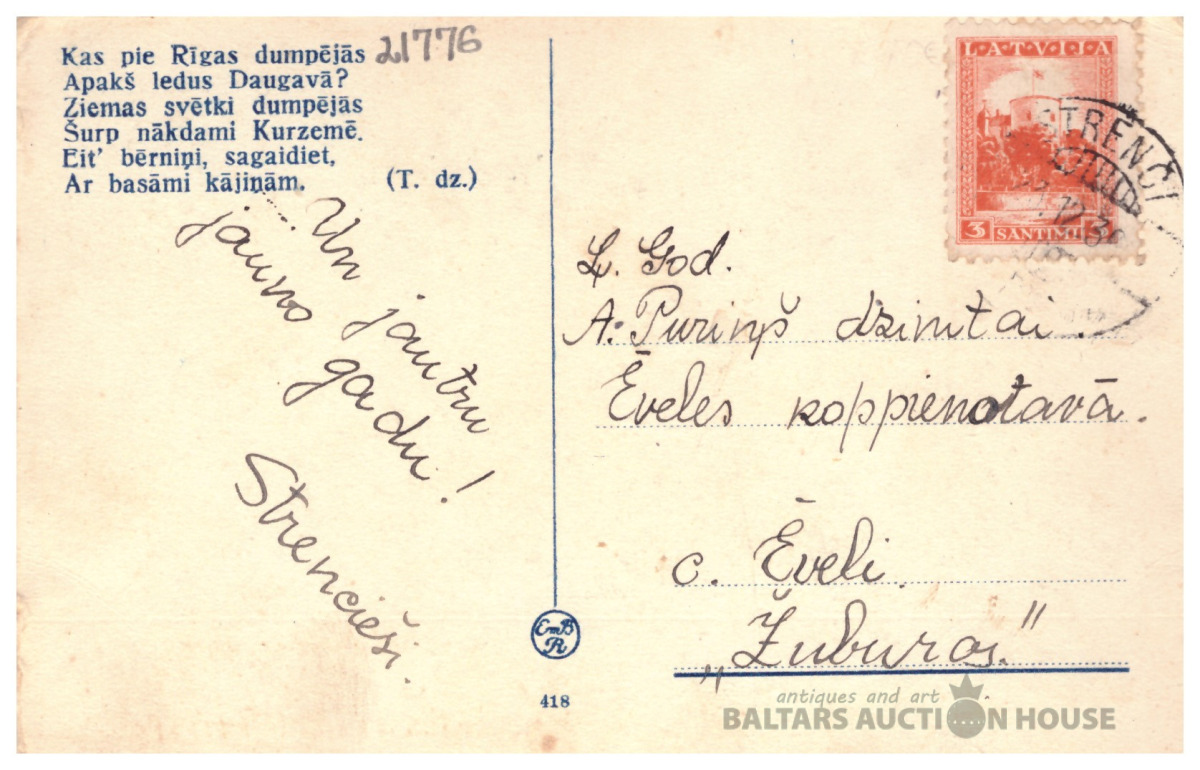 Kas pie Rīgas dumpējās
Apakš ledus Daugavā?
Ziemas svētki dumpējās
Šurp nākdami Kurzemē.
Eit' bērniņi, sagaidiet,
Ar basāmi kājiņām. (T. dz.)
21776
Un jautru
jauno gadu!
Strencieši.
LATVIJA
3 SANTIMI 3
STRENČI
Ļ. God.
A. Puriņš dzimtai.
Ēveles koppienotavā.
c. Ēveli
„Žuburos."
EmB
R
418
antiques and art
BALTARS AUCTION HOUSE